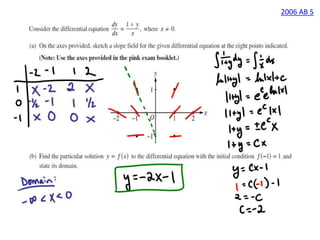 2006 AB 5
Consider the differential equation dy/dx = (1 + y)/x, where x ≠ 0.
(a) On the axes provided, sketch a slope field for the given differential equation at the eight points indicated.
(Note: Use the axes provided in the pink exam booklet.)
-2 -1 1 2
1 X -2 2 X
0 -½ -1 1 ½
-1 X 0 0 X
y
1
-2 -1 O 1 2 x
-1
∫ 1/(1+y) dy = ∫ 1/x dx
ln|1+y| = ln|x|+C
|1+y| = e^C e^(ln|x|)
|1+y| = e^C |x|
1+y = ±e^C x
1+y = Cx
(b) Find the particular solution y = f(x) to the differential equation with the initial condition f(−1) = 1 and
state its domain.
Domain:
-∞ < x < 0
y = -2x-1
y = Cx-1
1 = C(-1)-1
2 = -C
C = -2